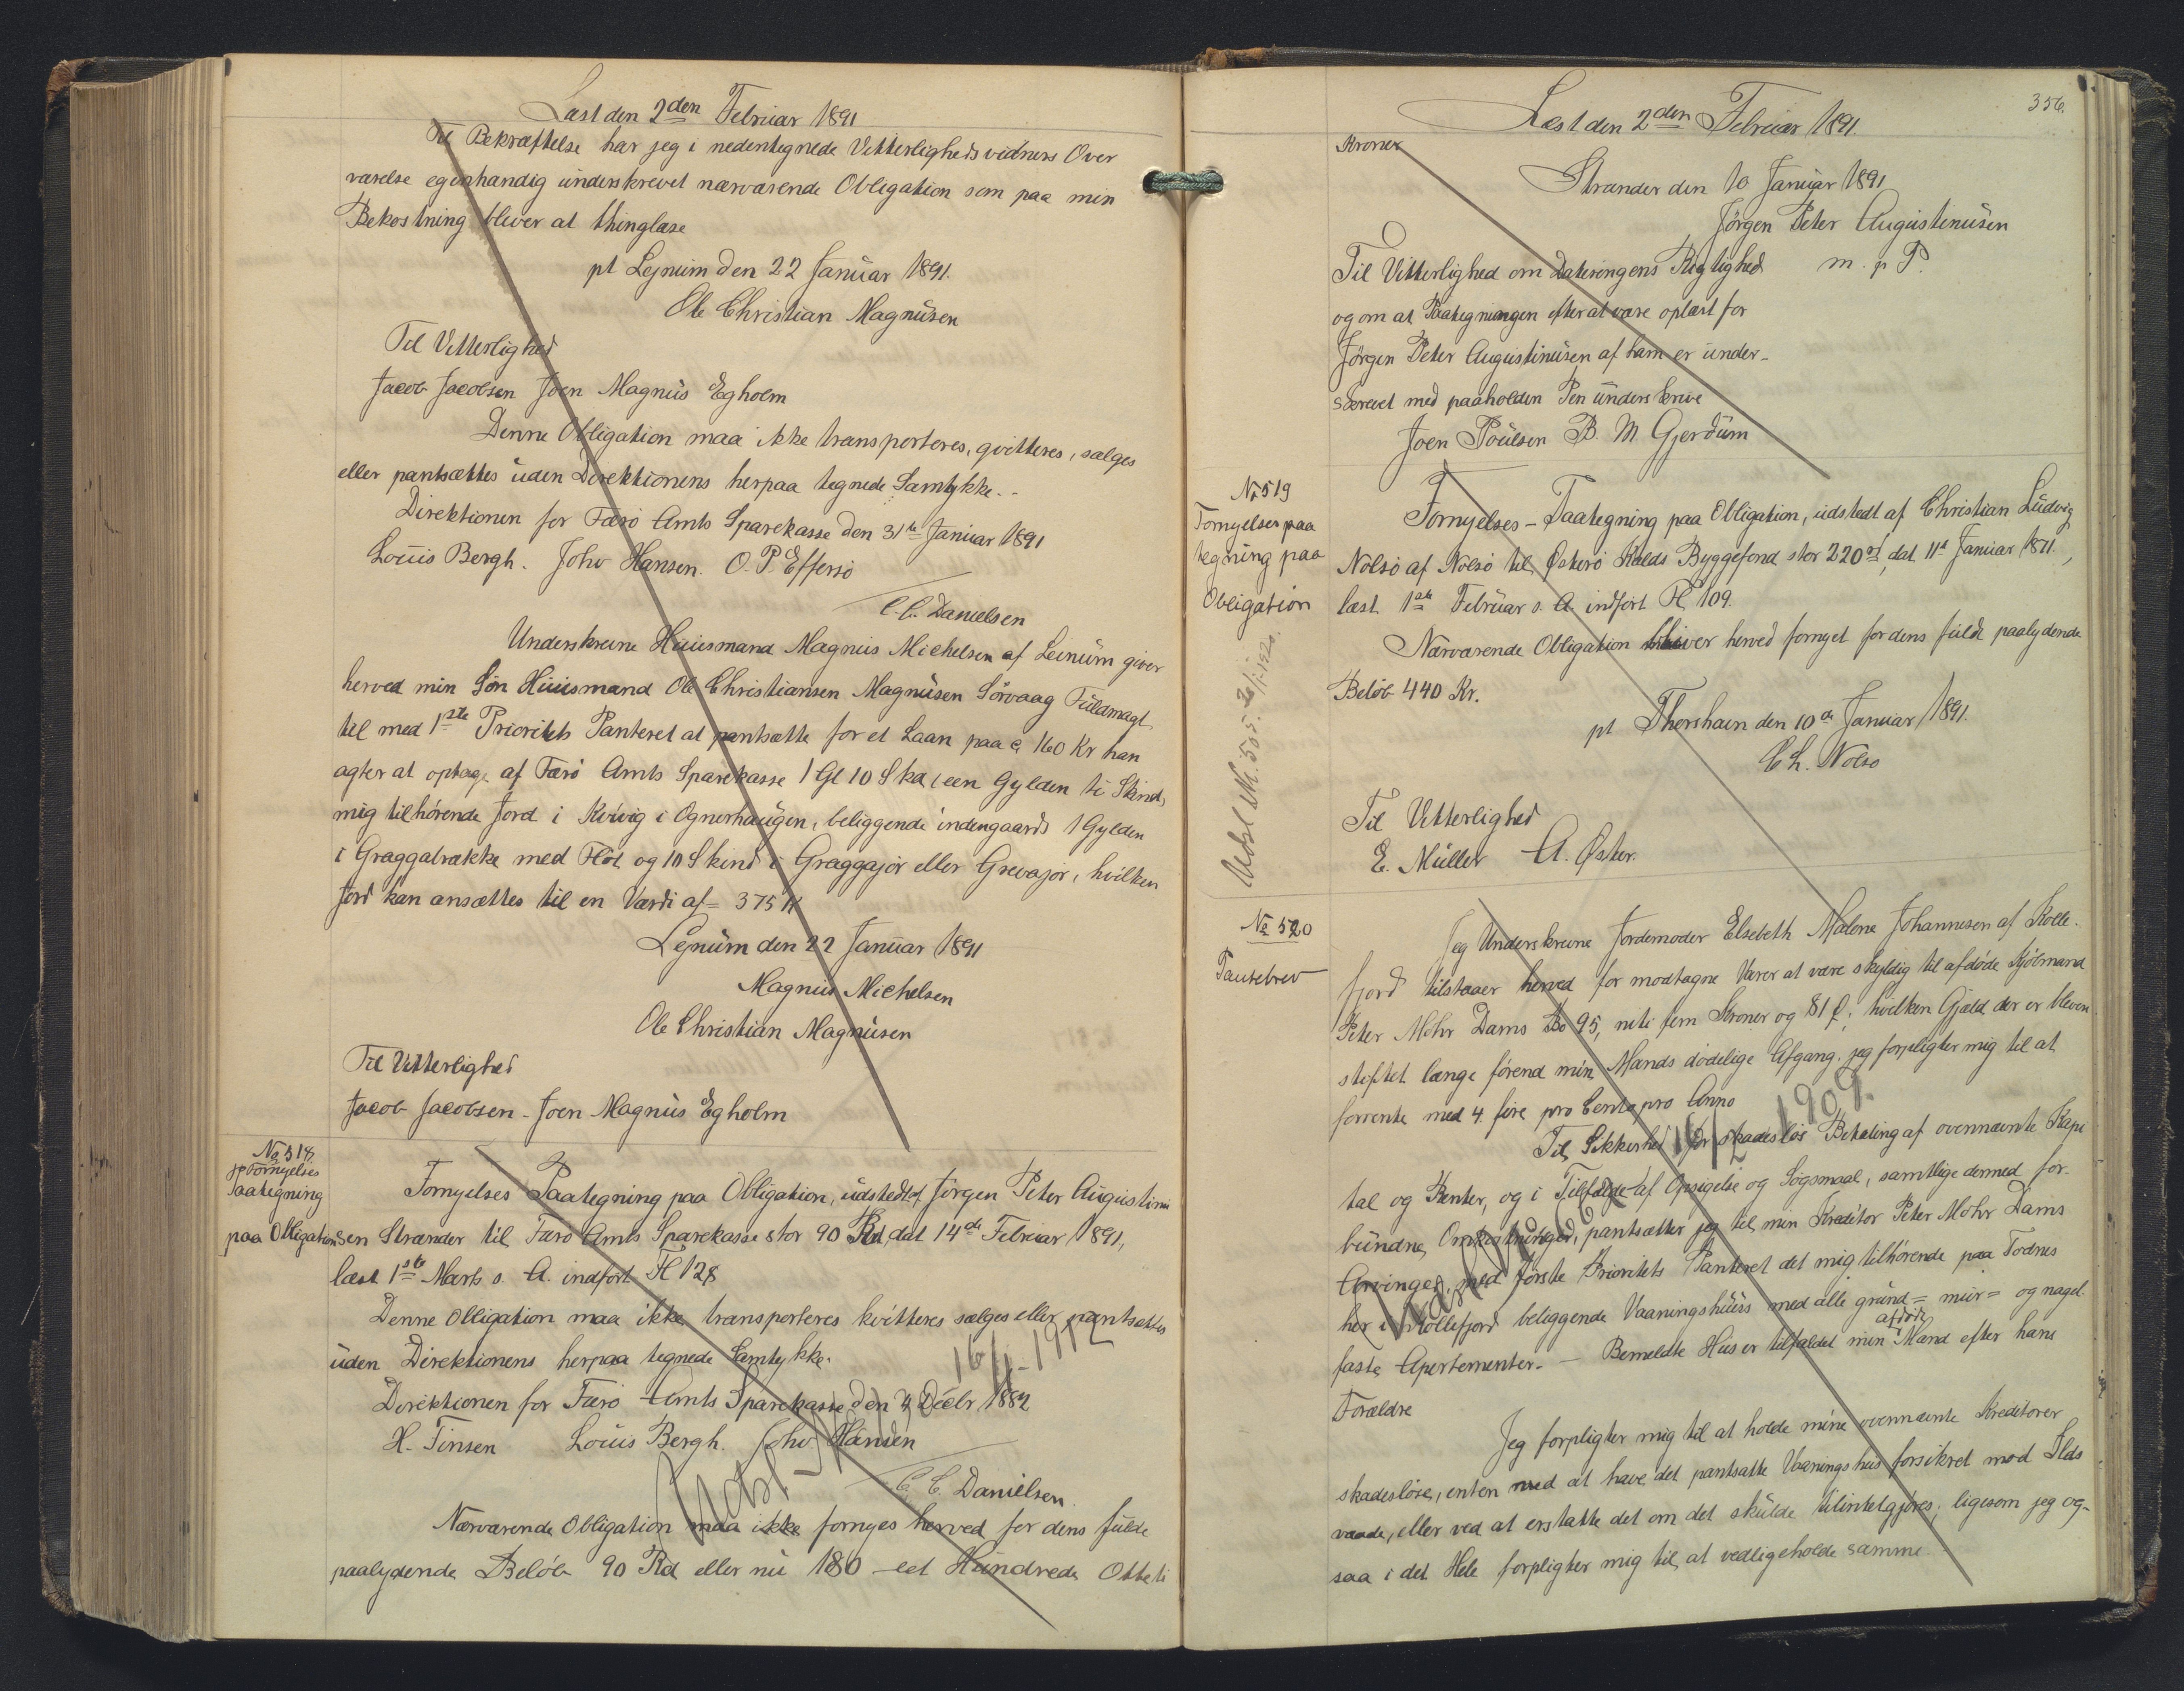 Læst den 2den Februar 1891
Til Bekræftelse har jeg i nedentegnede Vitterlighedsvidners Over
værelse egenhændig underskrevet nærværende Obligation som paa min
Bekostning bliver at thinglæse
pt Lejnum den 22 Januar 1891.
Ole Christian Magnusen
Til Vitterlighed
Jacob Jacobsen Joen Magnus Egholm
Denne Obligation maa ikke transporteres, qvitteres, sælges
eller pantsættes uden Direktionens herpaa tegnede Samtykke..
Direktionen for Færø Amts Sparekasse den 31te Januar 1891
Louis Bergh. Johs Hansen. O. P. Effersø
C. C. Danielsen
Underskrevne Huusmand Magnus Michelsen af Leinum giver
herved min Søn Huusmand Ole Christiansen Magnusen Sörvaag Fuldmagt
til med 1ste Prioritets Panteret at pantsætte for et Laan paa c 160 Kr han
agter at optage af Færø Amts Sparekasse 1 Gl 10 Skd (een Gylden ti Skind)
mig tilhørende Jord i Kvivig i Ognerhaugen, beliggende indengaards 1 Gylden
i Graggatrække med Flöt og 10 Skind i Graggajør eller Grevajør, hvilken
Jord kan ansættes til en Værdi af = 375 Kr
Lejnum den 22 Januar 1891
Magnus Michelsen
Ole Christian Magnusen
Til Vitterlighed
Jacob Jacobsen - Joen Magnus Egholm
No 518
Fornyelses
Paategning
paa Obligation
Fornyelses Paategning paa Obligation, udstedt af Jørgen Peter Augustinu
sen Strænder til Færø Amts Sparekasse stor 90 Rd, dat 14de Februar 1891,
læst 1ste Marts s. A. indført Fl 128
Denne Obligation maa ikke transporteres kvitteres sælges eller pantsættes
uden Direktionens herpaa tegnede Samtykke.
16/1-1912
Direktionen for Færø Amts Sparekasse den 4 Decbr 1882
H. Finsen Louis Bergh. Johs Hansen
C. C. Danielsen
Udsl
Nærværende Obligation maa ikke fornyes herved for dens fulde
paalydende Beløb 90 Rd eller nu 180 - eet Hundrede Otteti
356.
Læst den 2den Februar 1891
Kroner
Strænder den 10 Januar 1891
Jørgen Peter Augustinusen
Til Vitterlighed om Dateringens Rigtighed m. p. P.
og om at Paategningen efter at være oplæst for
Jørgen Peter Augustinusen af ham er under-
skrevet med paaholden Pen underskrive
Joen Poulsen B. M. Gjerdum
No 519
Fornyelsespaa
tegning paa
Obligation
Fornyelses-Paategning paa Obligation, udstedt af Christian Ludvig
Nolsö af Nolsö til Østerö Kolds Byggefond stor 220 rd, dat 11te Januar 1871,
læst 1ste Februar s. A. indført Fl 109.
Nærværende Obligation bliver herved fornyet for dens fuldt paalydende
Beløb 440 Kr.
pt Thorshavn den 10de Januar 1891.
Ch. Nolsø
Til Vitterlighed
E. Müller A. Øster.
No 520
Pantebrev
Jeg Underskrevne Jordemoder Elsebeth Malene Johannesen af Kolle-
fjord tilstaaer herved for modtagne Varer at være skyldig til afdøde Kjøbmand
Peter Mohr Dams Bo 95, niti fem Kroner og 81 Ø; hvilken Gjæld der er bleven
stiftet længe førend min Mands dødelige Afgang. jeg forpligter mig til at
forrente med 4. fire pro Cento pro Anno
Til Sikkerhed for skadesløs Betaling af ovennævnte Kapi
tal og Renter, og i Tilfælde af Opsigelse og Søgsmaal, samtlige dermed for-
bundne Omkostninger, pantsætter jeg til min Kreditor Peter Mohr Dams
Arvinger med første Prioritets Panteret det mig tilhørende paa Todnes
her i Kollefjord beliggende Vaaningshuus med alle grund= muur= og nagel-
faste Apertementer. - Bemeldte Hus er tilfaldet min afdøde Mand efter hans
Forældre
Jeg forpligter mig til at holde mine ovennævnte Kreditorer
skadesløse, enten med at have det pantsatte Vaaningshus forsikret mod Ilds
vaade, eller ved at erstatte det om det skulde tilintetgjøres; ligesom jeg og-
saa i det Hele forpligter mig til at vedligeholde samme